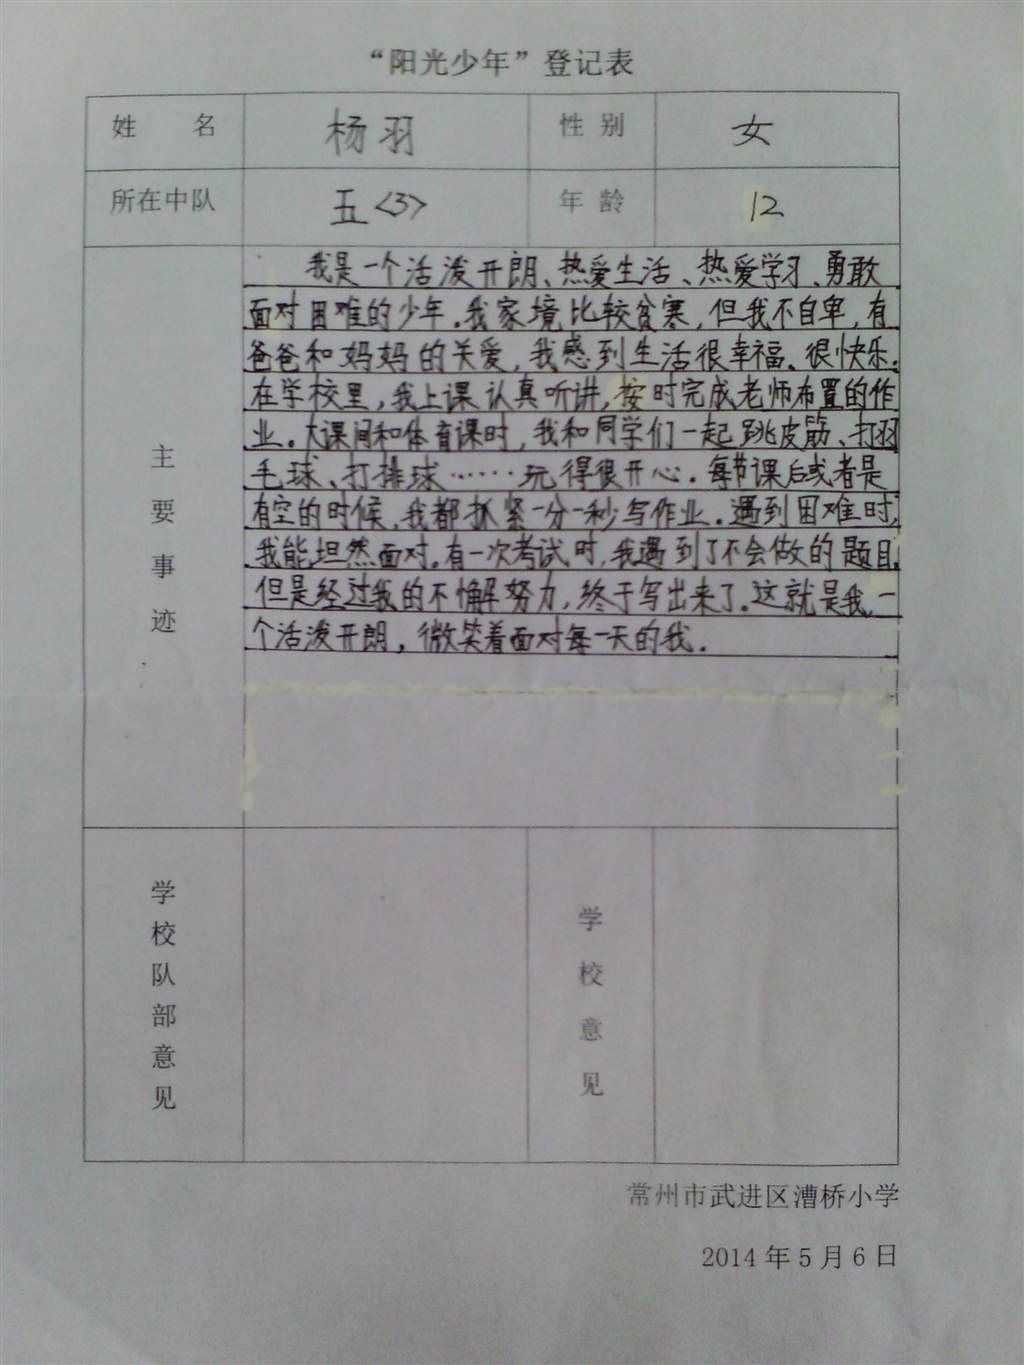 “阳光少年”登记表
姓 名 杨羽 性 别 女
所在中队 五<3> 年 龄 12
主要事迹
我是一个活泼开朗、热爱生活、热爱学习、勇敢
面对困难的少年.我家境比较贫寒,但我不自卑,有
爸爸和妈妈的关爱,我感到生活很幸福、很快乐.
在学校里,我上课认真听讲,按时完成老师布置的作
业。大课间和体育课时,我和同学们一起跳皮筋、打羽
毛球、打排球……玩得很开心.每节课后或者是
有空的时候,我都抓紧一分一秒写作业.遇到困难时,
我能坦然面对.有一次考试时,我遇到了不会做的题目,
但是经过我的不懈努力,终于写出来了.这就是我,一
个活泼开朗,微笑着面对每一天的我.
学校队部意见
学校意见
常州市武进区漕桥小学
2014年5月6日